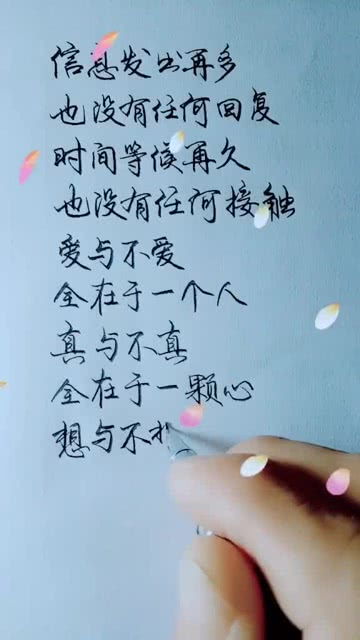 信息发出再多
也没有任何回复
时间等候再久
也没有任何接触
爱与不爱
全在于一个人
真与不真
全在于一颗心
想与不